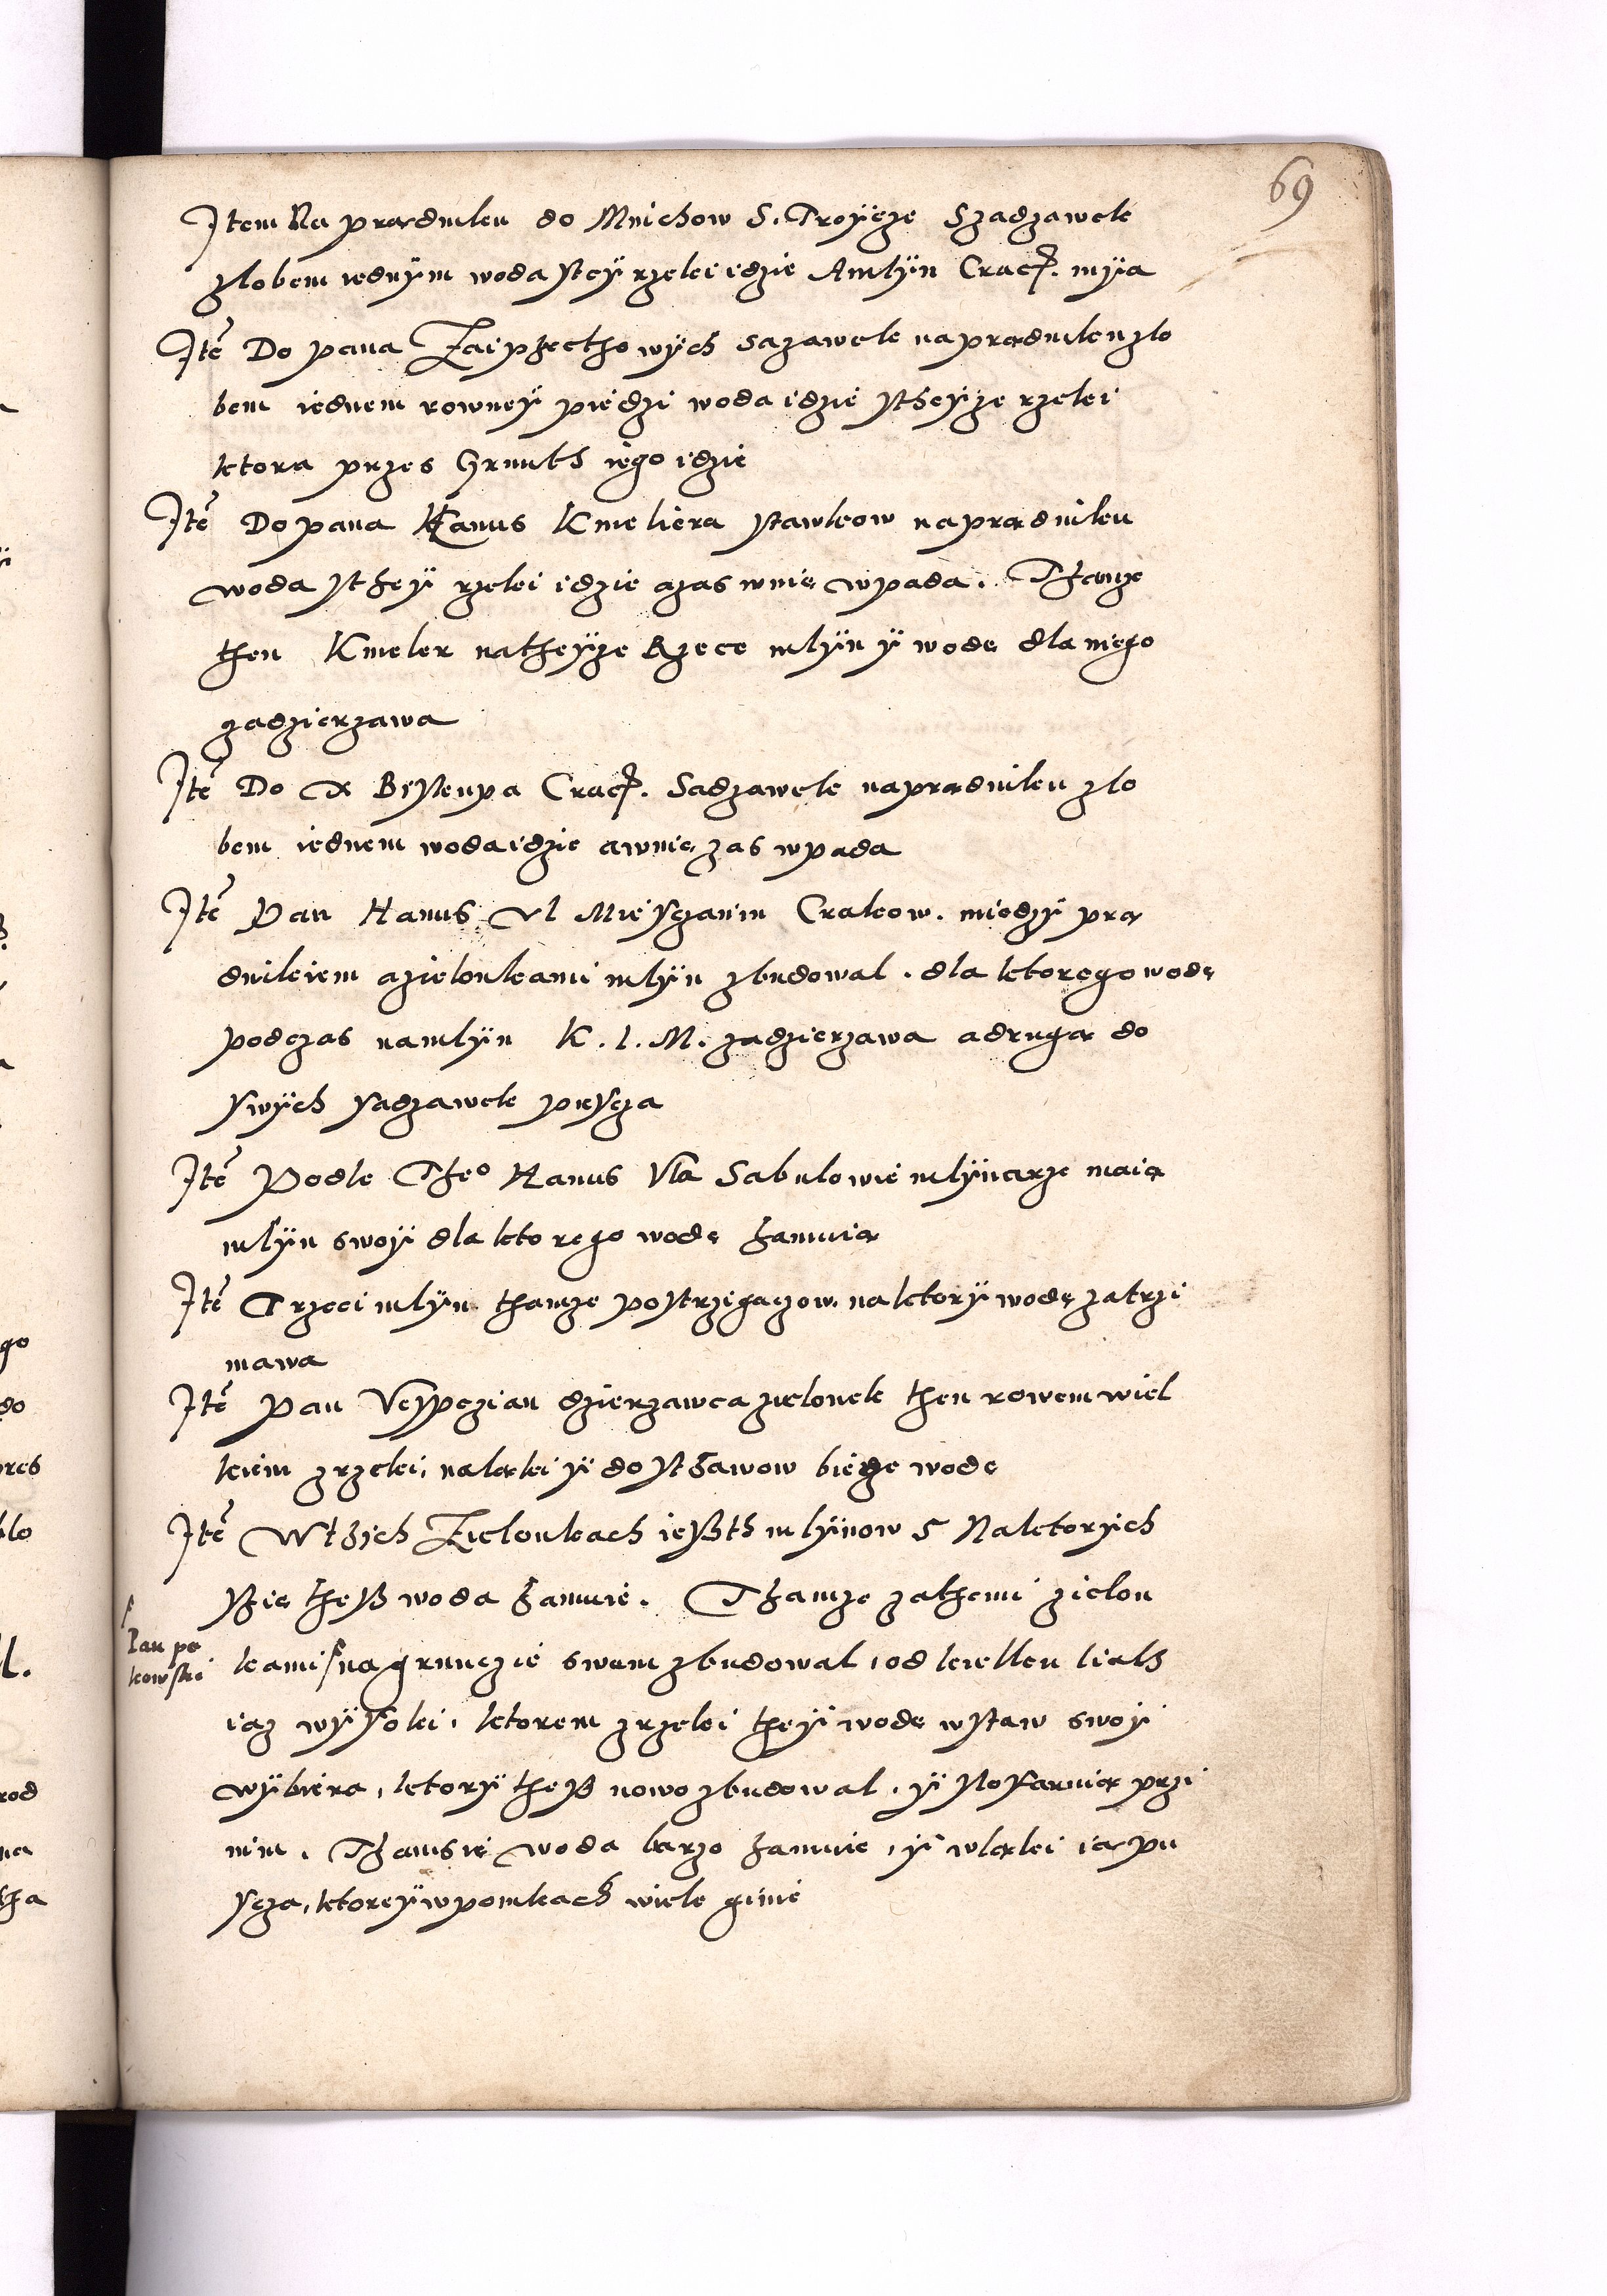 69
Item Na prądniku do Mnichow S. Troycze Szadzawek
zlobem iednÿm woda steÿ rzeki idzie Amlÿn Crac. mÿa
Ite Do pana Zaiprethowÿch sazawek na prądniku zlo
bem iednem rowneÿ piedzi woda idzie stheÿze rzeki
ktora przes Gruuth iego idzie
Ite Do pana Hanus Kmeliera stawkow na prądniku
woda stheÿ rzeki idzie azas wnię wpada. Thenze
then Kmeler natheÿze Rzece mlÿn ÿ wodę dla niego
zadzierzawa
Ite Do X Biskupa Crac. Sadzawek na prądniku zlo
bem iednem woda idzie awnię zas wpada
Ite Pan Hanus Vl Miesczanin Crakow. miedzÿ prą
dnikiem azielonkami mlÿn zbudowal. dla ktorego wodę
podczas namlÿn K. I. M. zadzierzawa adrugą do
swÿch sadzawek puscza
Ite Podle Theo Hanus Vla Sabulowie mlÿnarze maią
mlÿn swoÿ dla ktorego wodę hamuią
Ite Trzeci mlÿn thamze postrzigaczow. naktorÿ wodę zatrzi
mawa
Ite pan Vespezian dzierzawca zielonek then rowem wiel
kiem zrzeki, naląki ÿ do sthawow bierze wodę
Ite Wthÿch Zielonkach ießth mlÿnow 5 Naktorÿch
ssię theß woda hamuie. Thamze zathemi zielon
Pan pe
kowski
kami na grunczie swem zbudowal, od kielku liath
iaz wÿsoki, ktorem zrzeki theÿ wodę wstaw swoÿ
wÿbiera, ktorÿ theß nowo zbudowal, ÿ Slosarnią przi
nim. Tham sie woda barzo hamuie, ÿ wląki ią pu
scza, ktoreÿ wpomkach wiele ginie